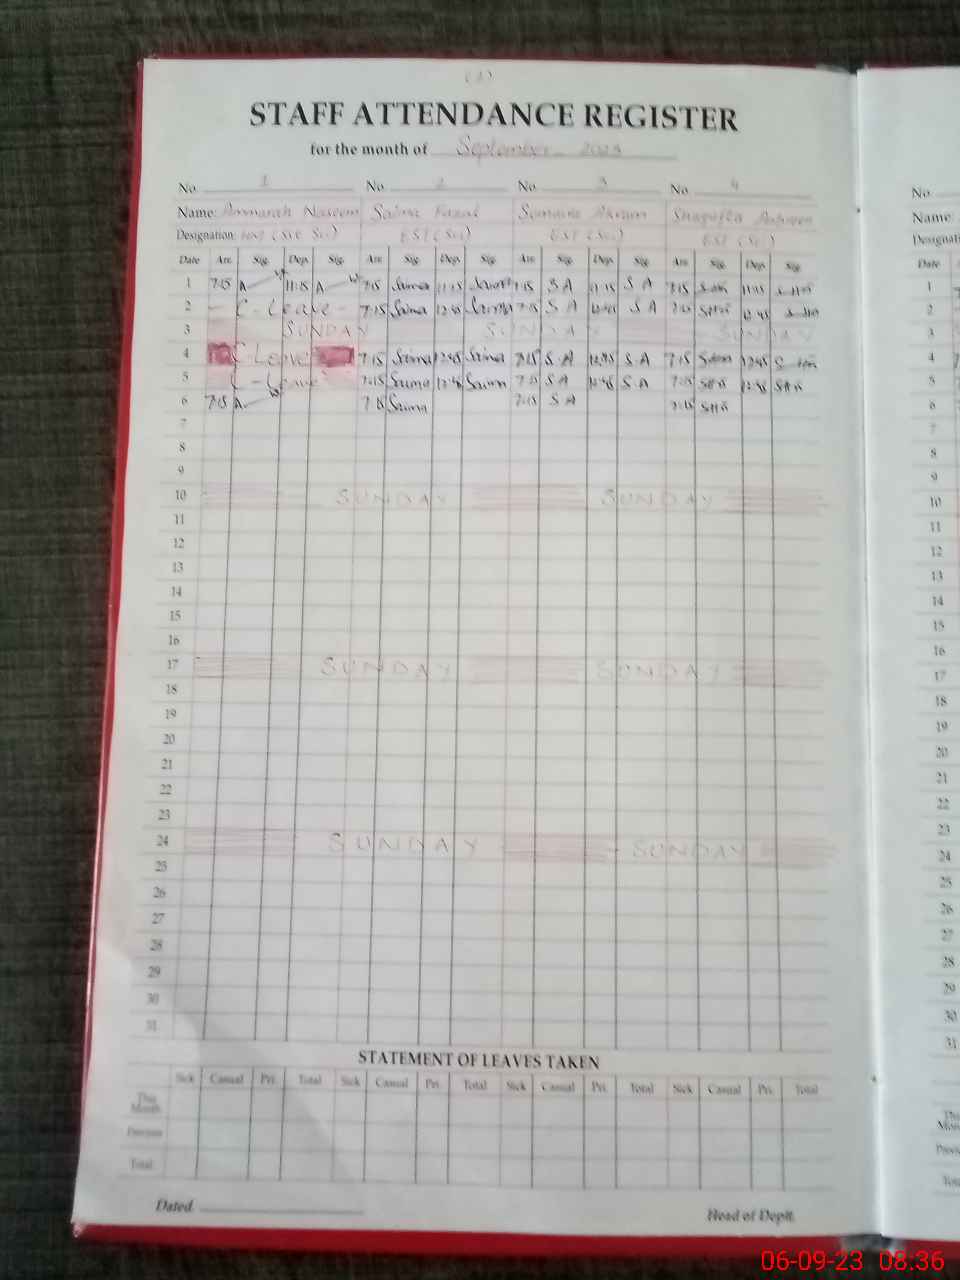 (1)
STAFF ATTENDANCE REGISTER
for the month of September 2023
No. 1 No. 2 No. 3 No. 4
Name: Ammarah Naseem Saima Fazal Sumaira Akram Shagufta
Designation: EST (Sci) EST (Sci) EST (Sci)
Date Arr. Sig. Dep. Sig. Arr. Sig. Dep. Sig. Arr. Sig. Dep. Sig. Arr. Sig. Dep. Sig.
1 7:15 A 11:15 A 7:15 Saima 11:15 Saima 7:15 S A 11:15 S A 7:15 11:15
2 - C-Leave - 7:15 Saima 12:45 Saima 7:15 S A 12:45 S A 7:15 12:45
3 SUNDAY SUNDAY SUNDAY
4 C-Leave 7:15 Saima 12:45 Saima 7:15 S.A 12:45 S.A 7:15 12:45
5 C-Leave 7:15 Saima 12:45 Saima 7:15 S.A 12:45 S.A 7:15 12:45
6 7:15 A 7:15 Saima 7:15 S A 7:15
7
8
9
10 SUNDAY SUNDAY
11
12
13
14
15
16
17 SUNDAY SUNDAY
18
19
20
21
22
23
24 SUNDAY SUNDAY
25
26
27
28
29
30
31
STATEMENT OF LEAVES TAKEN
Sick Casual Pri. Total Sick Casual Pri. Total Sick Casual Pri. Total Sick Casual Pri. Total
This
Month
Previous
Total
Dated Head of Deptt.
No.
Name:
Date
1
2
3
4
5
6
7
8
9
10
11
12
13
14
15
16
17
18
19
20
21
22
23
24
25
26
27
28
29
30
31
06-09-23 08:36